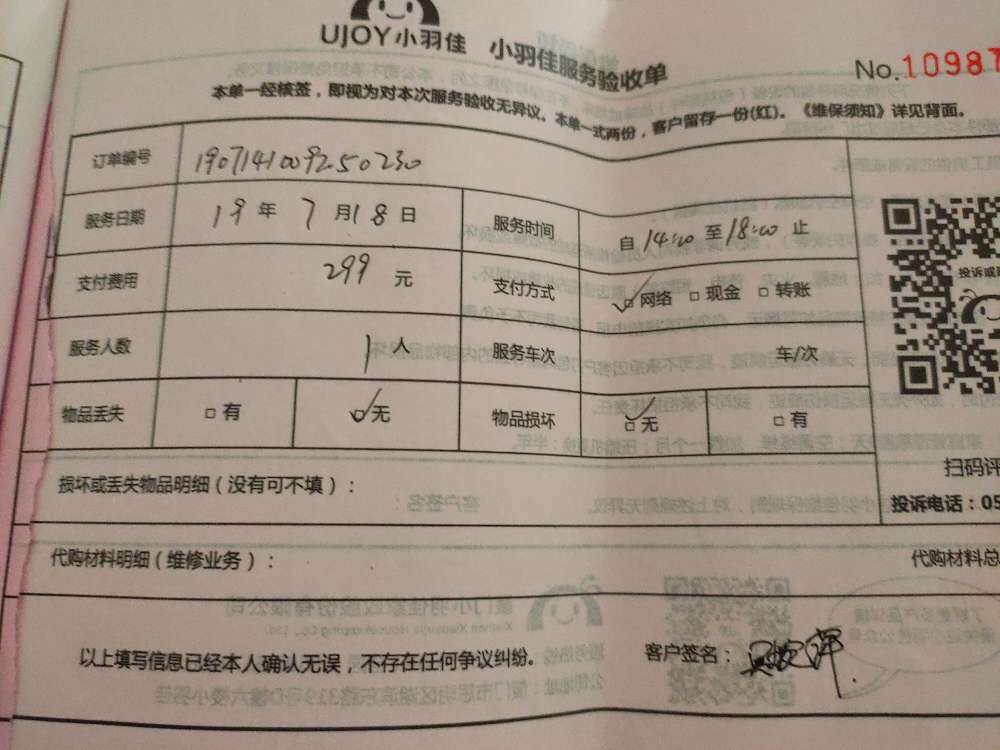 UJOY小羽佳 小羽佳服务验收单
No.10987
本单一经核签，即视为对本次服务验收无异议。本单一式两份，客户留存一份(红)。《维保须知》详见背面。
订单编号 190714100925 0230
服务日期 19年 7月18日 服务时间 自14:20至18:20止
支付费用 299元 支付方式 网络 现金 转账
服务人数 1人 服务车次 车/次
物品丢失 有 无 物品损坏 无 有
投诉或
扫码评
损坏或丢失物品明细（没有可不填）：
投诉电话：05
代购材料明细（维修业务）：
代购材料总
以上填写信息已经本人确认无误，不存在任何争议纠纷。
客户签名：